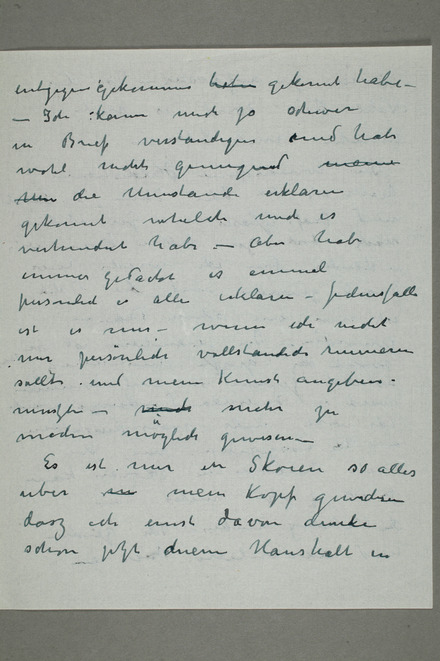 entgegengekommen gekonnt habe –
– Ich kann mich so schwer
in Brief verständigen und habe
wohl nicht genügend meine
die Umstände erklären
gekonnt welche mich es
verhindert habe – Aber habe
immer gedacht es einmal
persönlich alle erklären – Jedenfalls
ist es mir – wenn ich nicht
nur persönlich vollständig
sollte und meine Kunst angeben
muszte – nicht mehr zu
machen möglich gewesen –
Es ist mir ein so alles
über mein Kopf
dasz ich ernst davon denke
schon jetzt meinem Haushalt in